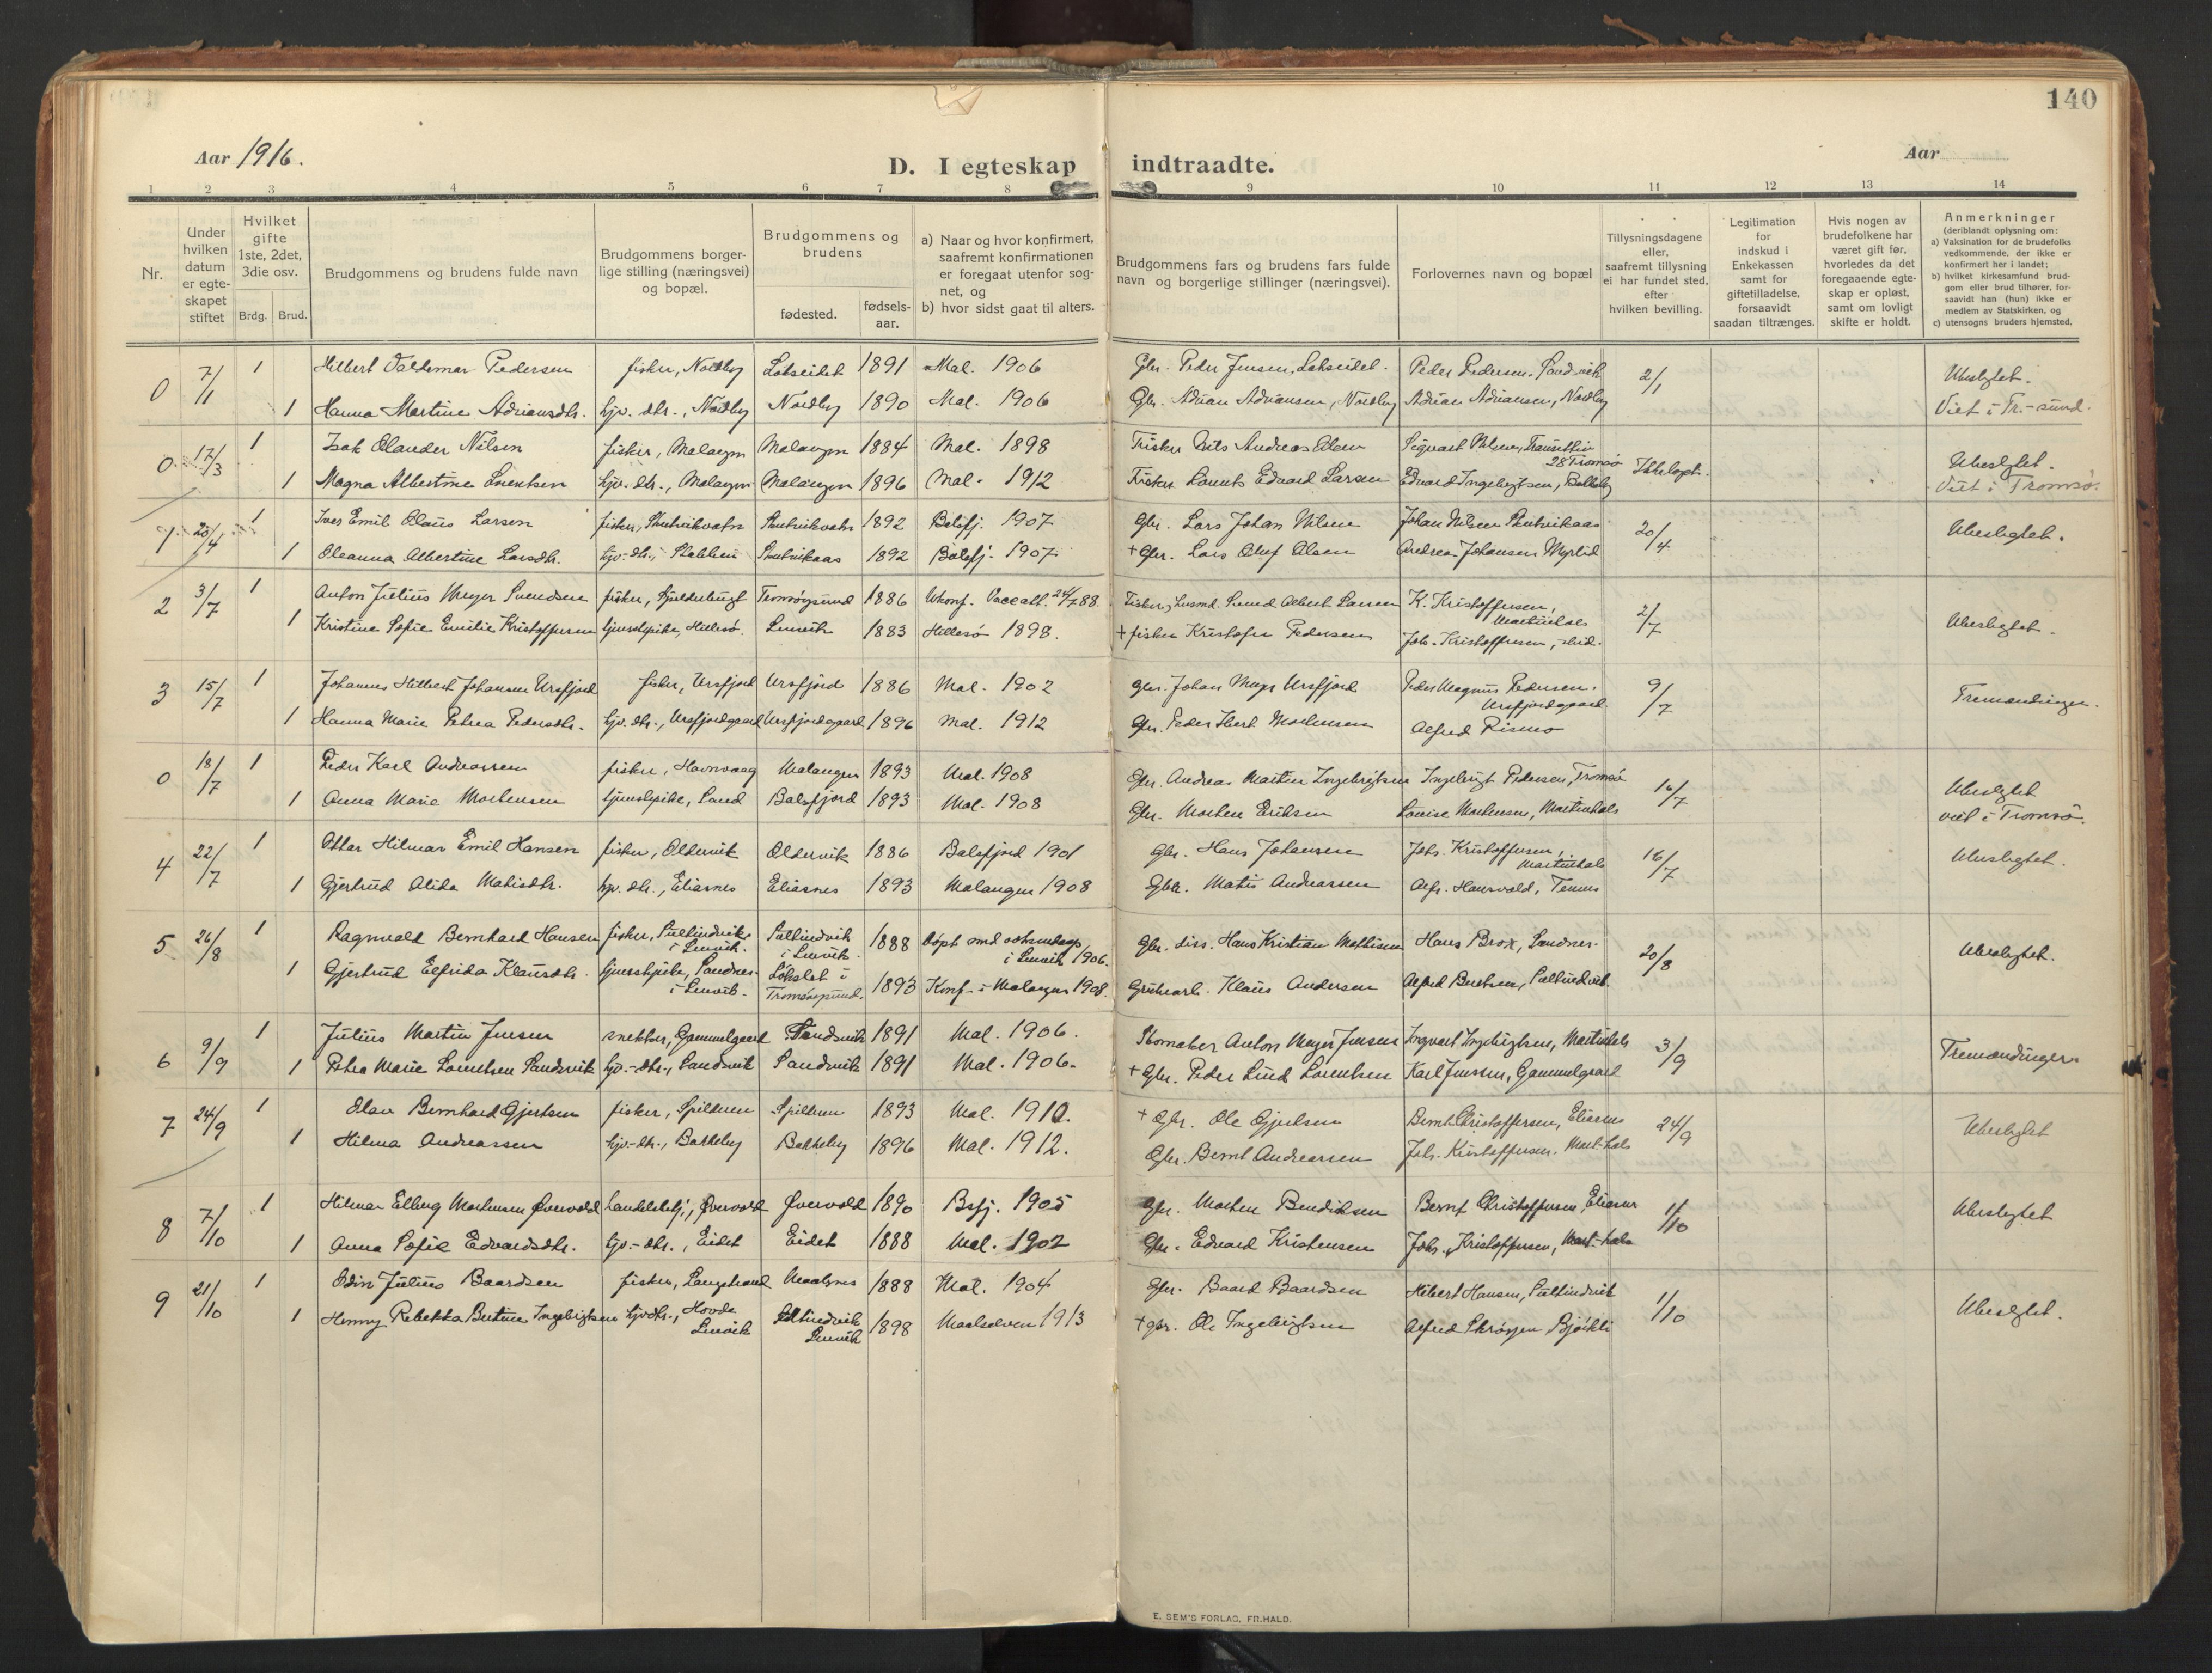 140
Aar 1916.
D. I egteskap indtraadte.
Aar
1 2 3 4 5 6 7 8 9 10 11 12 13 14
Nr.
Under hvilken datum er egteskapet stiftet
Hvilket gifte 1ste, 2det, 3die osv.
Brdg. Brud.
Brudgommens og brudens fulde navn
Brudgommens borgerlige stilling (næringsvei) og bopæl.
Brudgommens og brudens
fødested.
fødselsaar.
a) Naar og hvor konfirmert, saafremt konfirmationen er foregaat utenfor sognet, og
b) hvor sidst gaat til alters.
Brudgommens fars og brudens fars fulde navn og borgerlige stillinger (næringsvei).
Forlovernes navn og bopæl
Tillysningsdagene eller, saafremt tillysning ei har fundet sted, efter hvilken bevilling.
Legitimation for indskud i Enkekassen samt for giftetilladelse, forsaavidt saadan tiltrænges.
Hvis nogen av brudefolkene har været gift før, hvorledes da det foregaaende egteskap er opløst, samt om lovligt skifte er holdt.
Anmerkninger
(deriblandt oplysning om:
a) Vaksination for de brudefolks vedkommende, der ikke er konfirmert her i landet;
b) hvilket kirkesamfund brudgom eller brud tilhører, forsaavidt han (hun) ikke er medlem av Statskirken, og
c) utensogns bruders hjemsted.
0 7/1 1 Hilbert Valdemar Pedersen fisker, Nordby Lakseidet 1891 Mal. 1906 Gbr. Peder Jensen, Lakseidet. Peder Pedersen, Sandvik 2/1 Ubeslegtet.
1 Hanna Martine Adriansdtr. hjv. dtr., Nordby Nordby 1890 Mal. 1906 Gbr. Adrian Adriansen, Nordby Adrian Adriansen, Nordby Viet i Tr.-sund.
0 17/3 1 Isak Olander Nilsen fisker, Malangen Malangen 1884 Mal. 1898 Fisker Nils Andreas Olsen Sigvart Nilsen, 28 Tromsø Ubeslegtet.
1 Magna Albertine Lorentsen hjv. dtr., Malangen Malangen 1896 Mal. 1912 Fisker Lorents Edvard Larsen Edvard Ingebrigtsen, Viet i Tromsø.
1 20/4 1 Iver Emil Olaus Larsen fisker, 1892 Balsfj. 1907 Gbr. Lars Johan Nilsen Johan Nilsen 20/4 Ubeslegtet.
1 Oleanna Albertine Larsdtr. hjv. dtr., 1892 Balsfj. 1907 + Gbr. Lars Oluf Olsen Andreas Johansen Myrlid
2 3/7 1 Anton Julius Meyer Svendsen fisker, Tromsøysund 1886 Ukonf. Vacc att. 24/7 88. Fisker, husmd. Svend Albert Larsen K. Kristoffersen, Martinhals 2/7 Ubeslegtet.
1 Kristine Sofie Emilie Kristoffersen tjenestpike, Hillesø. Lenvik 1883 Hillesø 1898. + fisker Kristofer Pedersen Joh. Kristoffersen, ibid.
3 15/7 1 Johannes Hilbert Johansen Ursfjord fisker, Ursfjord Ursfjord 1886 Mal. 1902 gbr. Johan Meyer Ursfjord Peder Magnus Pedersen, Ursfjordgaard 9/7 Tremendinger.
1 Hanna Marie Petrea Pedersdtr. hjv. dtr., Ursfjordgaard Ursfjordgaard 1896 Mal. 1912 Gbr. Peder Ibert Mortensen Alfred Rismo
0 18/7 1 Peder Karl Andreassen fisker, Havnvaag Malangen 1893 Mal. 1908 Gbr. Andreas Martin Ingebrigtsen Ingebrigt Pedersen, Tromsø 16/7 Ubeslegtet
1 Anna Marie Mortensen tjenestpike, Sand Balsfjord 1893 Mal. 1908 Gbr. Morten Eriksen Louise Mortensen, Martinhals viet i Tromsø.
4 22/7 1 Ottar Hilmar Emil Hansen fisker, Oldervik Oldervik 1886 Balsfjord 1901 Gbr. Hans Johansen Johs. Kristoffersen, Martinhals 16/7 Ubeslegtet.
1 Gjertrud Alida Matisdtr. hjv. dtr., Eliasnes Eliasnes 1893 Malangen 1908 Gbr. Matis Andreassen Alfr. Hansvold,
5 26/8 1 Ragnvald Bernhard Hansen fisker, Sultindvik i Lenvik. Sultindvik i Lenvik. 1888 døpt i Lenvik 1906. Gbr. diss. Hans Kristian Mathisen Hans Brox, Sandnes. 20/8 Ubeslegtet.
1 Gjertrud Elfrida Klausdtr. tjenestpike, Sandnes i Lenvik. Løkslet i Tromsøysund. 1893 Konf. i Malangen 1908. Grubearb. Klaus Andersen Alfred Berthsen, Sultindvik.
6 9/9 1 Julius Martin Jensen snekker, Gammelgaard Sandvik 1891 Mal. 1906. Skomaker Anton Meyer Jensen Ingvart Ingebrigtsen, Martinhals 3/9 Tremendinger.
1 Petra Marie Lorentsen Sandsvik hjv.-dtr., Sandvik Sandvik 1891 Mal. 1906. + Gbr. Peder Lind Lorentsen Karl Jensen, Gammelgaard
7 24/9 1 Olav Bernhard Gjertsen fisker, Spildren Spildren 1893 Mal. 1910. + Gbr. Ole Gjertsen Bernt Christoffersen, Eliasnes 24/9 Ubeslegtet
1 Hilma Andreassen hjv.-dtr., Bakkeby Bakkeby 1896 Mal. 1912. Gbr. Bernt Andreassen Joh. Kristoffersen. Mart-hals
8 7/10 1 Hilmar Elberg Mortensen Øvervold handelsbetj., Øvervold Øvervold 1890 Bsfj. 1905 Gbr. Morten Bendiksen Bernt Christoffersen, Eliasnes 1/10 Ubeslegtet
1 Anna Sofie Edvardsdtr. hjv.-dtr., Eidet Eidet 1888 Mal. 1902 Gbr. Edvard Kristensen Johs. Kristoffersen, Mart-hals
9 21/10 1 Odin Julius Baardsen fisker, Langstrand Maalsnes 1888 Mal. 1904 Gbr. Baard Baardsen Hilbert Hansen, Sultindvik 1/10 Ubeslegtet.
1 Henny Rebekka Bertine Ingebrigtsen hjv dtr., Hovde Lenvik Sultindvik Lenvik 1898 Maalselven 1913 + gbr. Ole Ingebrigtsen Alfred
E. SEM'S FORLAG, FR.HALD.